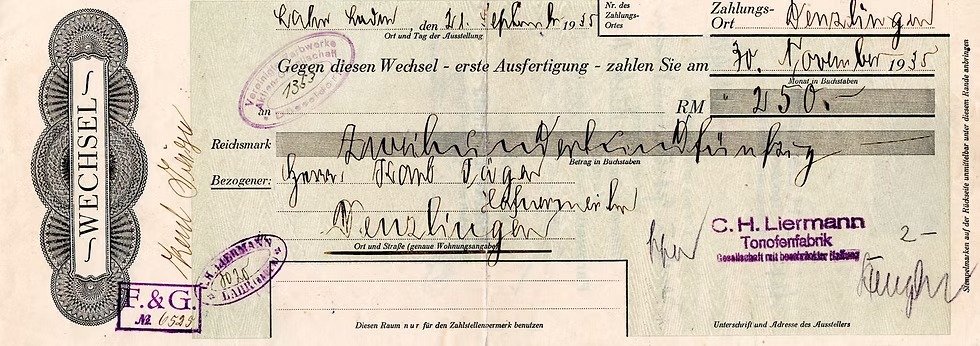 WECHSEL
Lahr Baden, den 21. September 1935
Ort und Tag der Ausstellung
Nr. des
Zahlungs-
Ortes
Zahlungs-
Ort Denzlingen
Gegen diesen Wechsel - erste Ausfertigung - zahlen Sie am 30. November 1935
Monat in Buchstaben
an
RM 250.-
Reichsmark zweihundertundfünfzig
Betrag in Buchstaben
Bezogener: Herrn Karl Jäger
Hafnermeister
Denzlingen
Ort und Straße (genaue Wohnungsangabe)
Karl Jäger
C.H. LIERMANN
1020
LAHR
F. & G.
№ 6525
C. H. Liermann
Tonofenfabrik
Gesellschaft mit beschränkter Haftung
2-
Diesen Raum nur für den Zahlstellenvermerk benutzen
Unterschrift und Adresse des Ausstellers
Stempelmarken auf der Rückseite unmittelbar unter diesem Rande anbringen